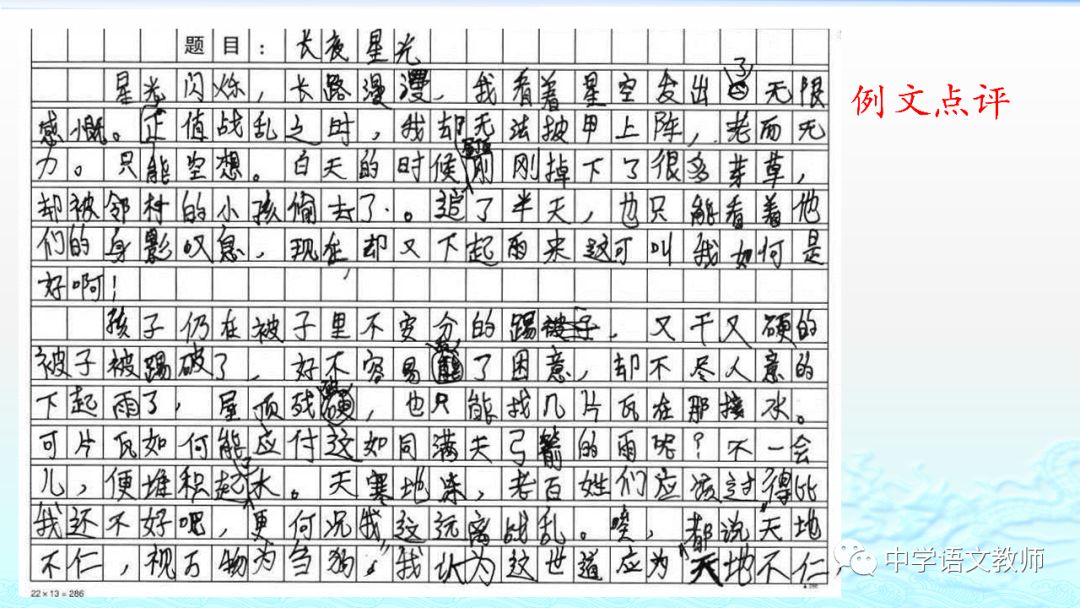 题目：长夜星光
星光闪烁，长路漫漫，我看着星空发出了无限
感慨。正值战乱之时，我却无法披甲上阵，老而无
力。只能空想。白天的时候刚掉下了很多茅草，
却被邻村的小孩偷去了。追了半天，也只能看着他
们的身影叹息，现在却又下起雨来这可叫我如何是
好啊！
孩子仍在被子里不安分的踢，又干又硬的
被子被踢破了，好不容易有了困意，却不尽人意的
下起雨了，屋顶残破，也只能找几片瓦在那接水。
可片瓦如何能应付这如同满天弓箭的雨呢？不一会
儿，便堆积起了水。天寒地冻，老百姓们应该过得比
我还不好吧，更何况我这远离战乱。唉，都说天地
不仁，视万物为刍狗，我认为这世道应为天地不仁
22×13=286
例文点评
中学语文教师